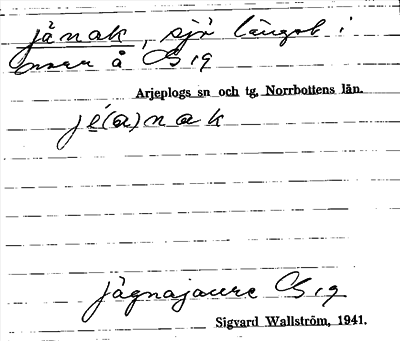 jånak, sjö längst i
å C 19
Arjeplogs sn och tg, Norrbottens län.
jé(a)nak
jågnajaure C 19
Sigvard Wallström, 1941.